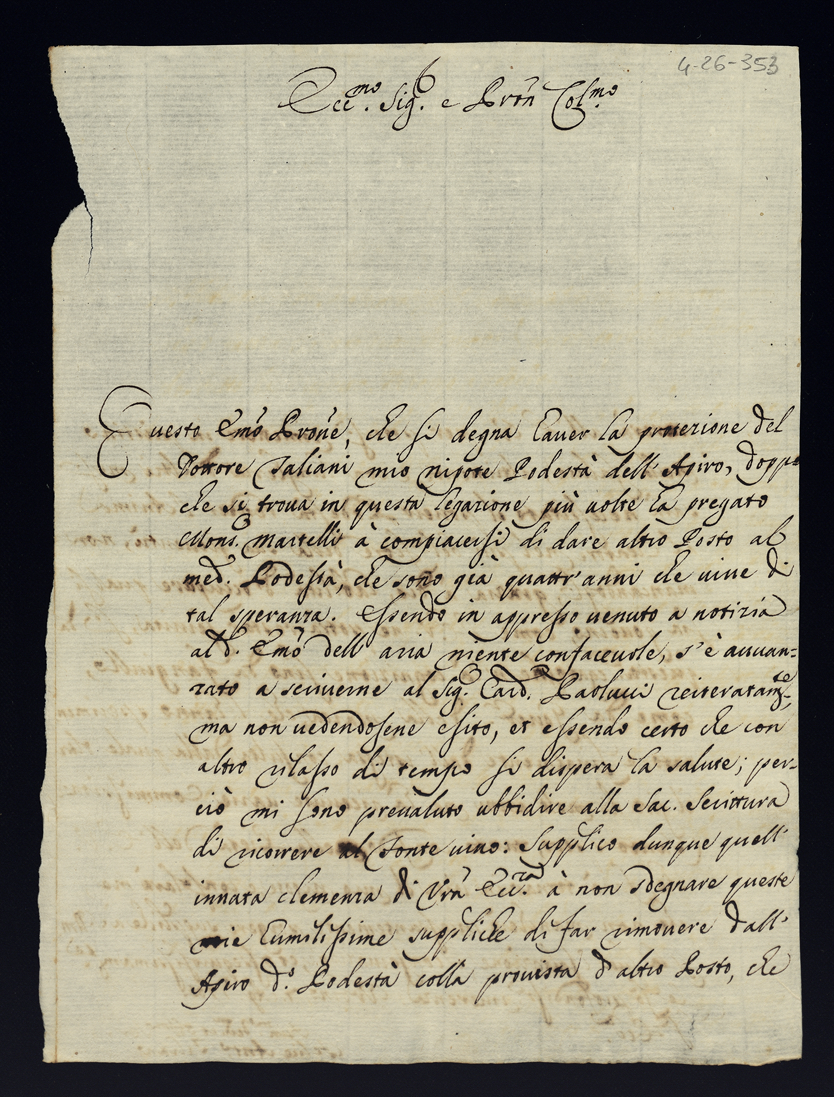 4-26-353
Ecc.mo Sig.r e Pron Col.mo
Questo Emo Prone, che si degna haver la protezione del
Dottore Taliani mio nipote Podestà dell'Apiro, doppo
che si trova in questa legazione più volte ha pregato
Mons.r Martelli à compiacersi di dare altro Posto al
med.o Podestà, che sono già quattr'anni che vive di
tal speranza. Essendo in appresso venuto a notizia
al d.o Emo dell'aria niente confacevole, s'è avvan=
zato a scriverne al Sig.r Card. Paolucci reiteratam.te,
ma non vedendosene esito, et essendo certo che con
altro rilasso di tempo si dispera la salute; per=
ciò mi sono prevaluto ubbidire alla Sac. Scrittura
di ricorrere al Fonte vivo: Supplico dunque quell'
innata clemenza di Vra Ecc.za à non sdegnare queste
mie humilissime suppliche di far rimovere dall'
Apiro d.o Podestà colla provista d'altro Posto, che